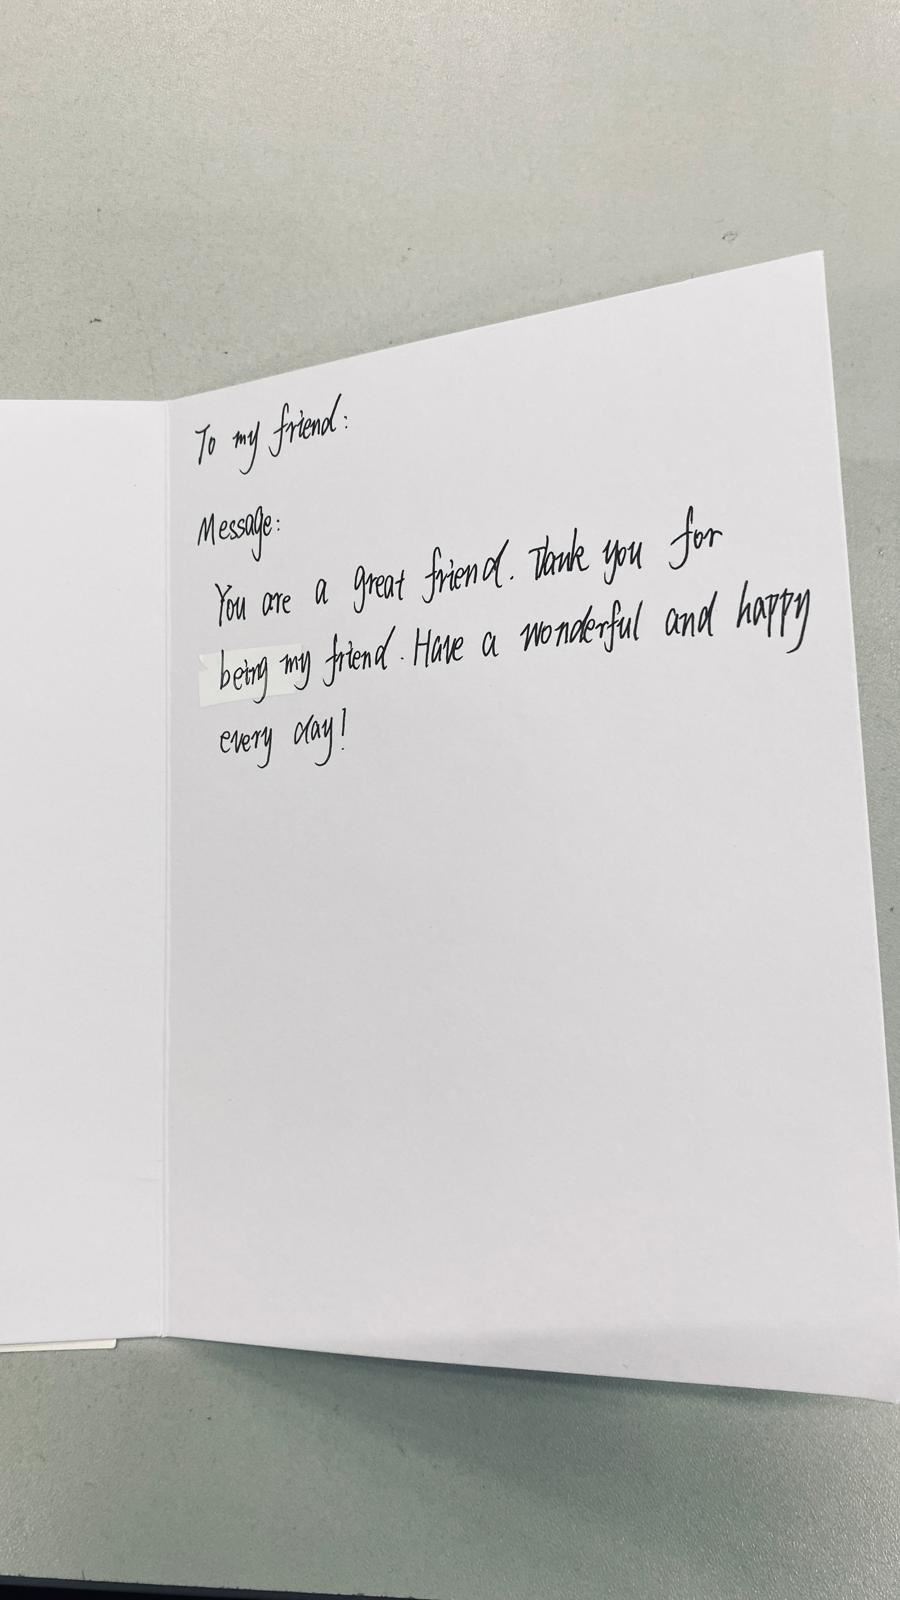 To my friend:
Message:
You are a great friend. Thank you for
being my friend. Have a wonderful and happy
every day!